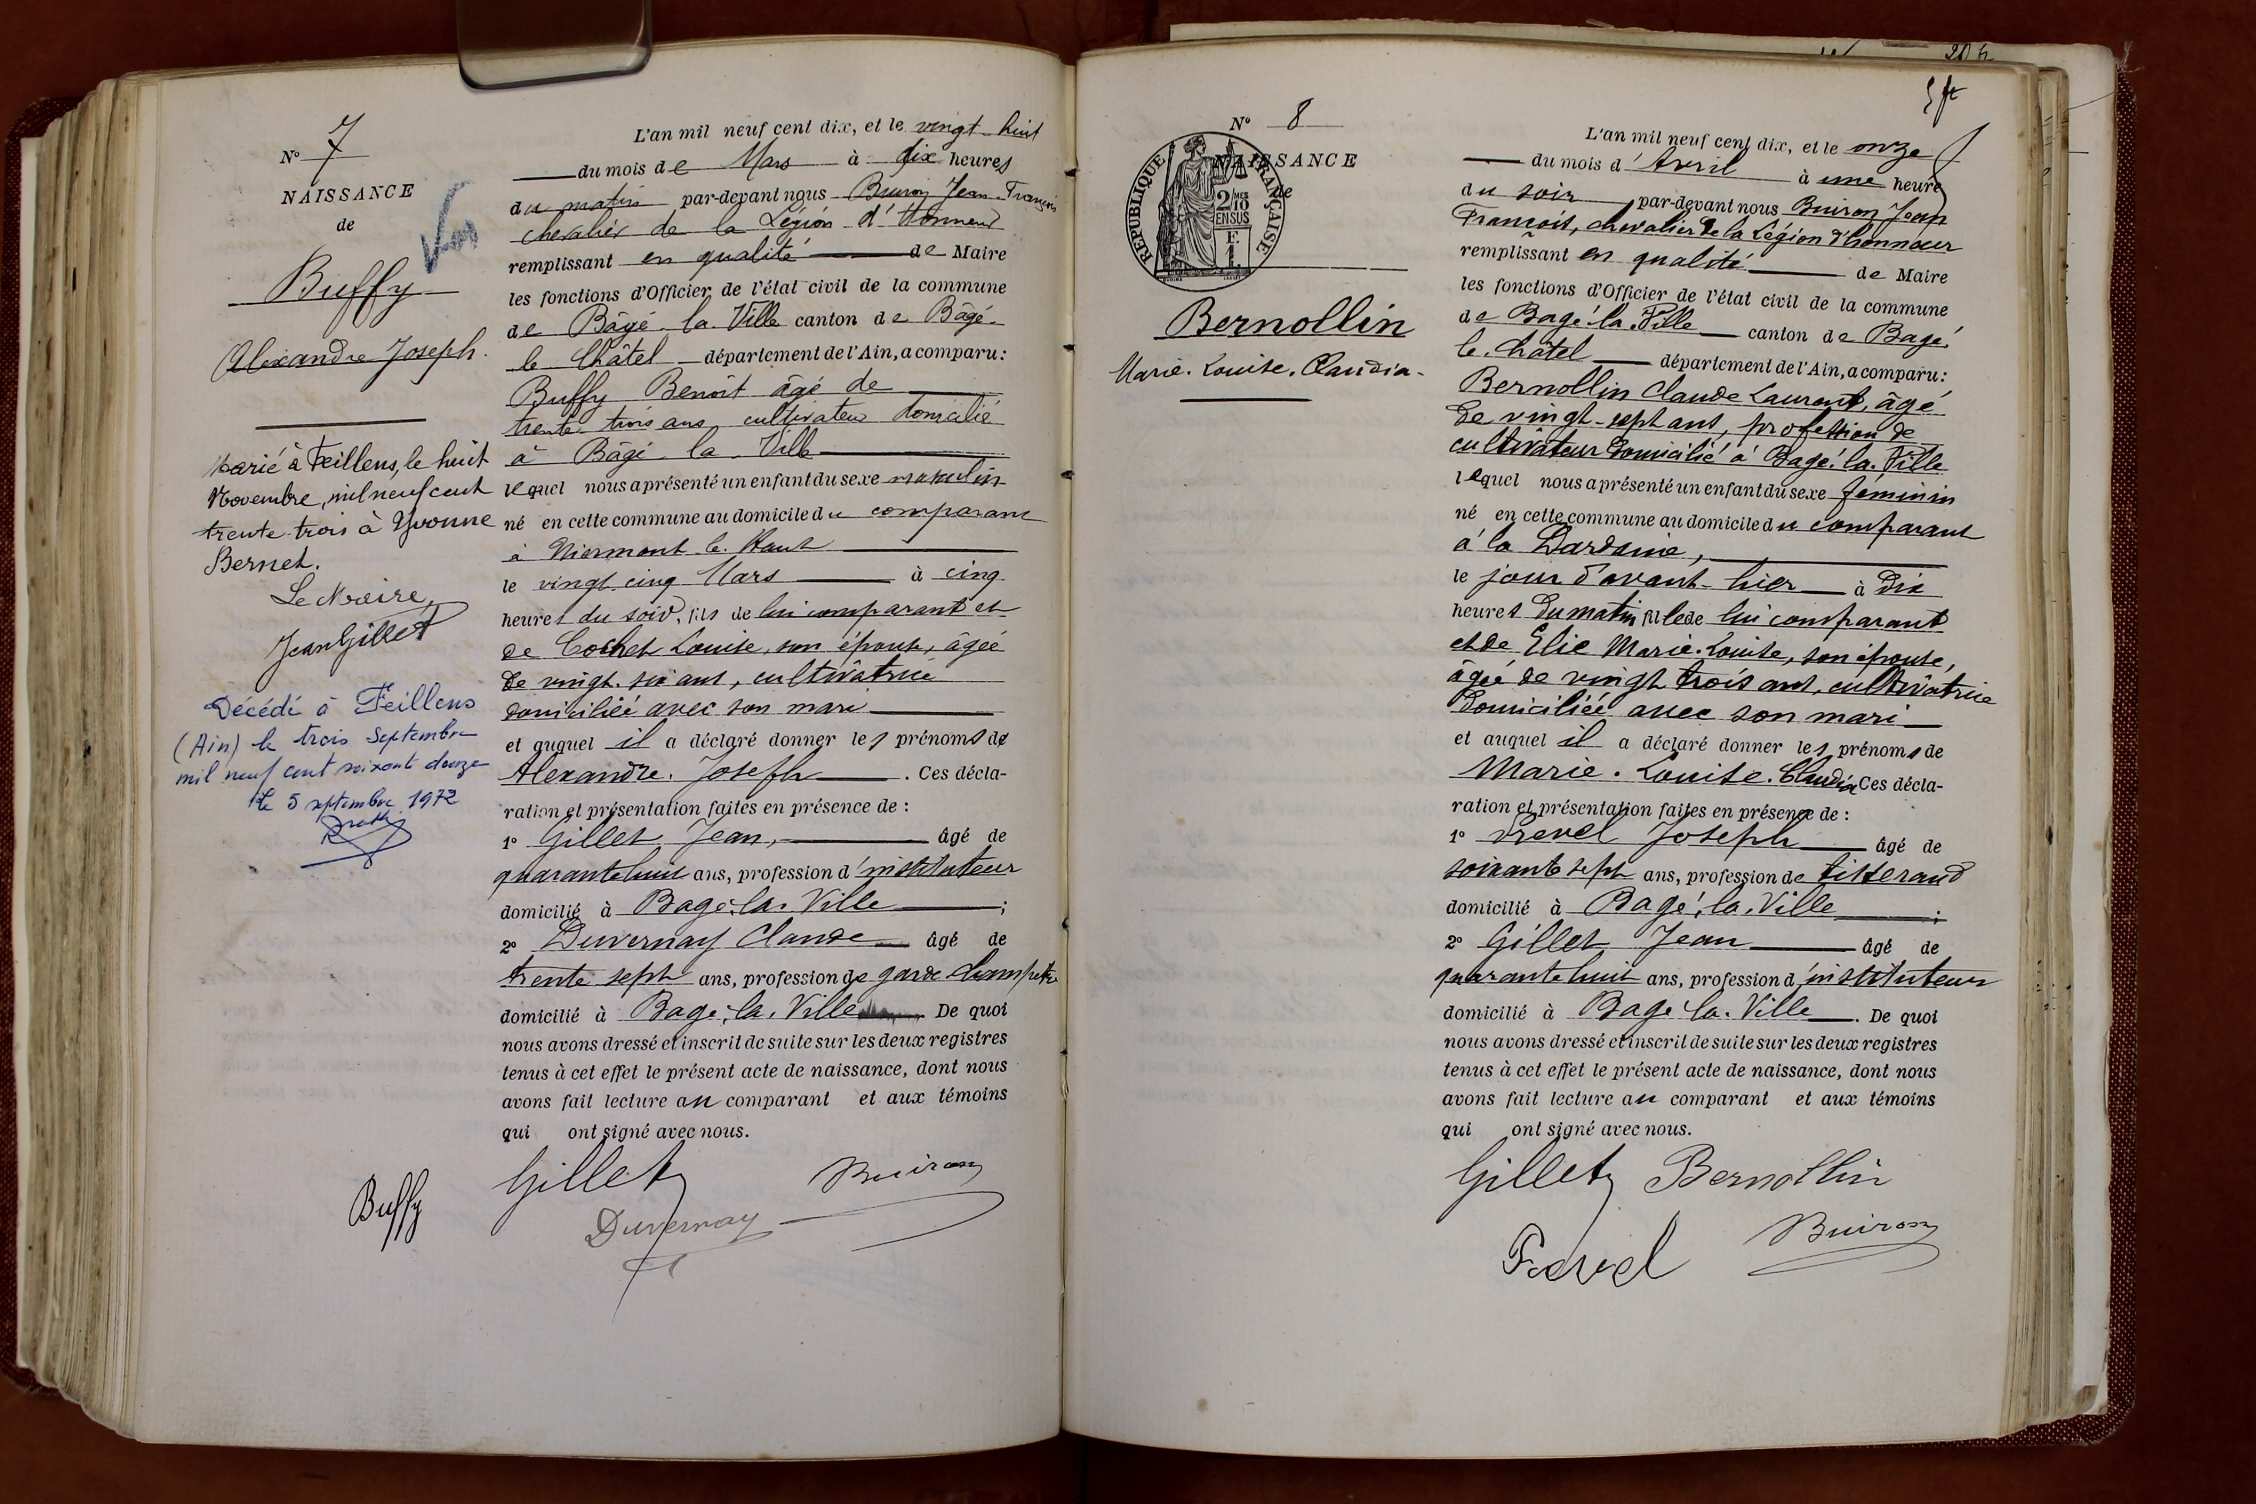 N° 7
NAISSANCE
de
Buffy
Alexandre Joseph.
Marié à Feillens, le huit
Novembre, mil neuf cent
trente-trois à Yvonne
Bernet.
Le Maire,
Jean Gillet
Décédé à Feillens
(Ain) le trois Septembre
mil neuf cent soixant douze
le 5 septembre 1972
L'an mil neuf cent dix, et le vingt-huit
du mois de Mars à dix heures
du matin par-devant nous Buiron Jean-François
chevalier de la Légion d'Honneur
remplissant en qualité de Maire
les fonctions d'Officier de l'état civil de la commune
de Bâgé-la-Ville canton de Bâgé-
le Châtel département de l'Ain, a comparu :
Buffy Benoît âgé de
trente trois ans cultivateur domicilié
à Bâgé-la-Ville
lequel nous a présenté un enfant du sexe masculin
né en cette commune au domicile du comparant
à Niermont-le-Haut
le vingt cinq Mars à cinq
heures du soir, fils de lui comparant et
de Cochet Louise, son épouse, âgée
de vingt-six ans, cultivatrice
domiciliée avec son mari
et auquel il a déclaré donner les prénoms de
Alexandre. Joseph . Ces décla-
ration et présentation faites en présence de :
1° Gillet Jean, âgé de
quarante huit ans, profession d'instituteur
domicilié à Bagé-la-Ville ;
2° Duvernay Claude âgé de
trente sept ans, profession de garde champêtre
domicilié à Bagé-la-Ville De quoi
nous avons dressé et inscrit de suite sur les deux registres
tenus à cet effet le présent acte de naissance, dont nous
avons fait lecture au comparant et aux témoins
qui ont signé avec nous.
Buffy Gillet Buiron
Duvernay
N° 8
NAISSANCE
de
REPUBLIQUE FRANÇAISE
2/10
EN SUS
Bernollin
Marie-Louise-Claudia-
L'an mil neuf cent dix, et le onze
du mois d'Avril à une heure
du soir par-devant nous Buiron Jean
François, chevalier de la Légion d'honneur
remplissant en qualité de Maire
les fonctions d'Officier de l'état civil de la commune
de Bagé-la-Ville canton de Bagé-
le-Châtel département de l'Ain, a comparu :
Bernollin Claude Laurent, âgé
de vingt-sept ans, profession de
cultivateur domicilié à Bagé-la-Ville
lequel nous a présenté un enfant du sexe féminin
né en cette commune au domicile du comparant
à la Dardaine,
le jour d'avant-hier à dix
heures du matin fille de lui comparant
et de Elie Marie-Louise, son épouse,
âgée de vingt trois ans, cultivatrice
domiciliée avec son mari
et auquel il a déclaré donner les prénoms de
Marie-Louise-Claudia Ces décla-
ration et présentation faites en présence de :
1° Prevel Joseph âgé de
soixante sept ans, profession de tisserand
domicilié à Bagé-la-Ville ;
2° Gillet Jean âgé de
quarante huit ans, profession d'instituteur
domicilié à Bagé-la-Ville . De quoi
nous avons dressé et inscrit de suite sur les deux registres
tenus à cet effet le présent acte de naissance, dont nous
avons fait lecture au comparant et aux témoins
qui ont signé avec nous.
Gillet Bernollin
Prevel Buiron